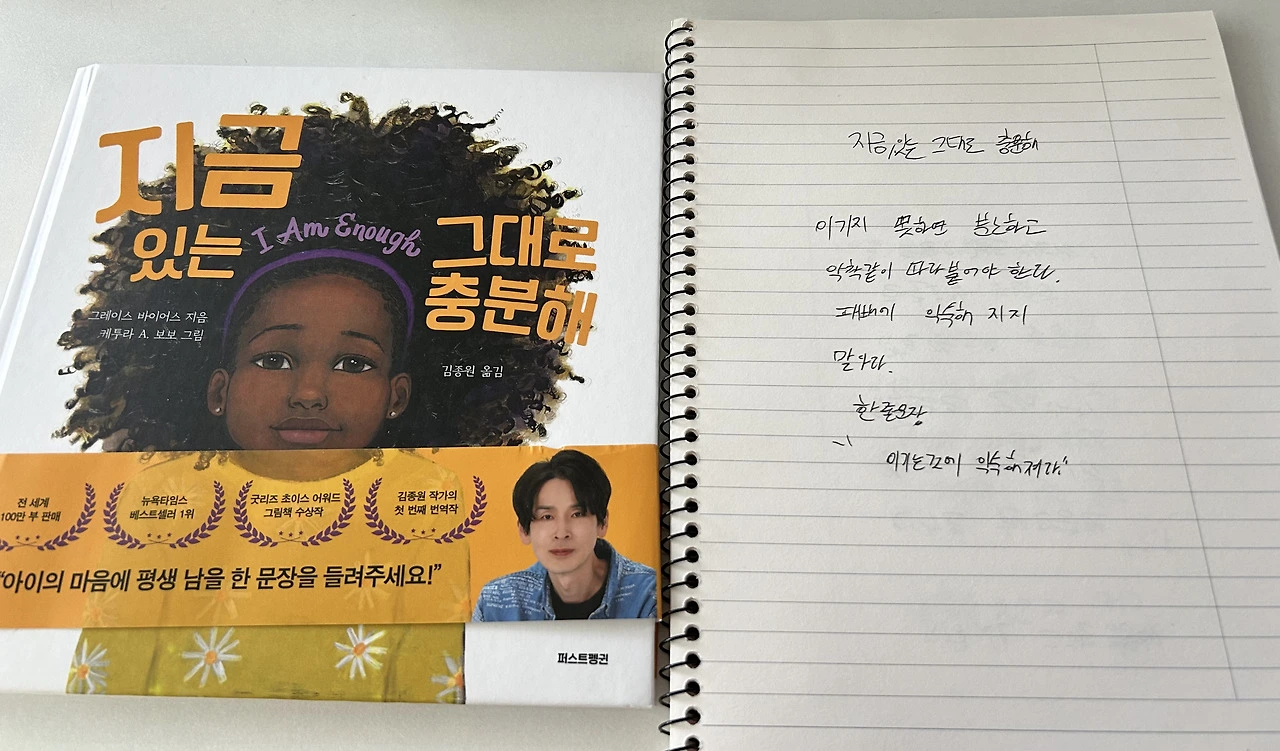 지금
있는
I Am Enough
그대로
충분해
그레이스 바이어스 지음
케투라 A. 보보 그림
김종원 옮김
전 세계
100만 부 판매
뉴욕타임스
베스트셀러 1위
굿리즈 초이스 어워드
그림책 수상작
김종원 작가의
첫 번째 번역작
"아이의 마음에 평생 남을 한 문장을 들려주세요!"
퍼스트펭귄
지금 있는 그대로 충분해
이기지 못하면 분노하고
악착같이 따라붙어야 한다.
패배에 익숙해 지지
말아라.
한줄요장
"이기는것에 익숙해져라"